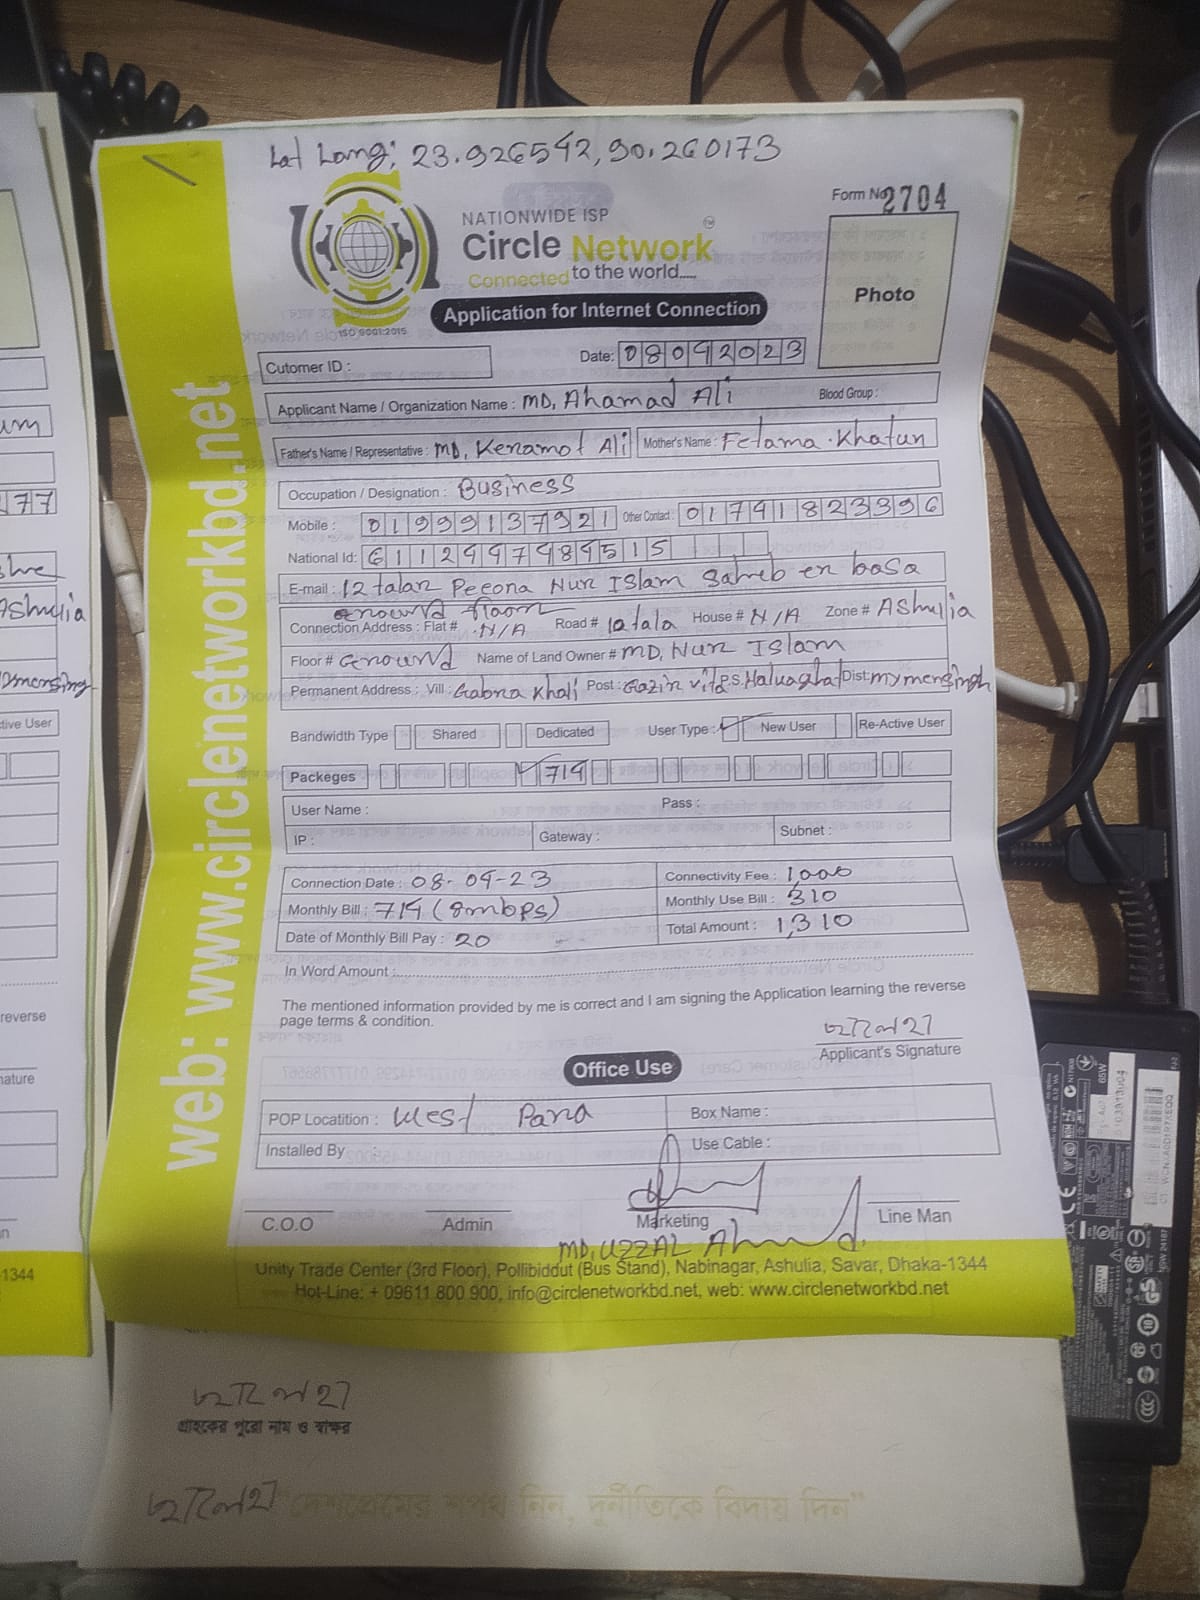 Lat Lang: 23.926542, 90.260173
Form No 2704
NATIONWIDE ISP
Circle Network
TM
Connected to the world.....
ISO 9001:2015
Application for Internet Connection
Photo
Cutomer ID :
Date: 08092023
Applicant Name / Organization Name : MD, Ahamad Ali Blood Group :
Father's Name / Representative : MD, Keramot Ali Mother's Name : Fetama Khatun
Occupation / Designation : Business
Mobile : 01999137921 Other Contact : 01741823396
National Id: 6112997989515
E-mail : 12 talar Peeona Nur Islam Saheb er basa
Ground floor
Connection Address : Flat # N/A Road # 10 tala House # N/A Zone # Ashulia
Floor # Ground Name of Land Owner # MD, Nur Islam
Permanent Address : Vill : Gabra Khali Post : Gazir P.S. Haluaghat Dist: mymensingh
Bandwidth Type Shared Dedicated User Type : New User Re-Active User
Packeges 714
User Name : Pass :
IP : Gateway : Subnet :
Connection Date : 08-09-23 Connectivity Fee : 1,000
Monthly Bill : 714 (8mbps) Monthly Use Bill : 310
Date of Monthly Bill Pay : 20 Total Amount : 1,310
In Word Amount :
The mentioned information provided by me is correct and I am signing the Application learning the reverse
page terms & condition.
Applicant's Signature
Office Use
POP Locatition : West Para Box Name :
Installed By Use Cable :
C.O.O Admin Marketing Line Man
MD, UZZAL Ahmed.
Unity Trade Center (3rd Floor), Pollibiddut (Bus Stand), Nabinagar, Ashulia, Savar, Dhaka-1344
Hot-Line: + 09611 800 900, info@circlenetworkbd.net, web: www.circlenetworkbd.net
web: www.circlenetworkbd.net
গ্রাহকের পুরো নাম ও স্বাক্ষর
"দেশপ্রেমের শপথ নিন, দুর্নীতিকে বিদায় দিন"
77
Ashulia
tive User
reverse
nature
-1344
65W